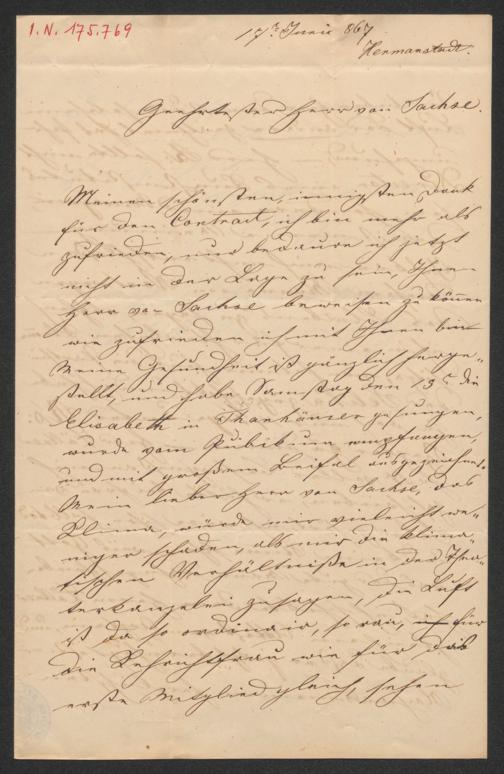 I. N. 175.769
17t Juni 867
Hermanstadt.
Geehrtester Herr von Sachse.
Meinen schönsten, innigsten Dank
für den Contract, ich bin mehr als
zufrieden, nur bedaure ich jetzt
nicht in der Lage zu sein, Ihnen
Herr von Sachse beweisen zu können
wie zufrieden ich mit Ihnen bin
Meine Gesundheit ist gänzlich herge„
stellt, und habe Samstag den 15t die
Elisabeth in Thanhäuser gesungen,
wurde vom Publikum empfangen,
und mit großem Beifal ausgezeichnet.
Mein lieber Herr von Sachse, das
Klima, würde mir vieleicht we„
niger schaden, als mir die klima„
tischen Verhältniße in der Thea„
terkanzelei zusagen, die Luft
ist da so ordinair, so rau, für
die Kehrichtfrau wie für das
erste Mitglied gleich, sehen